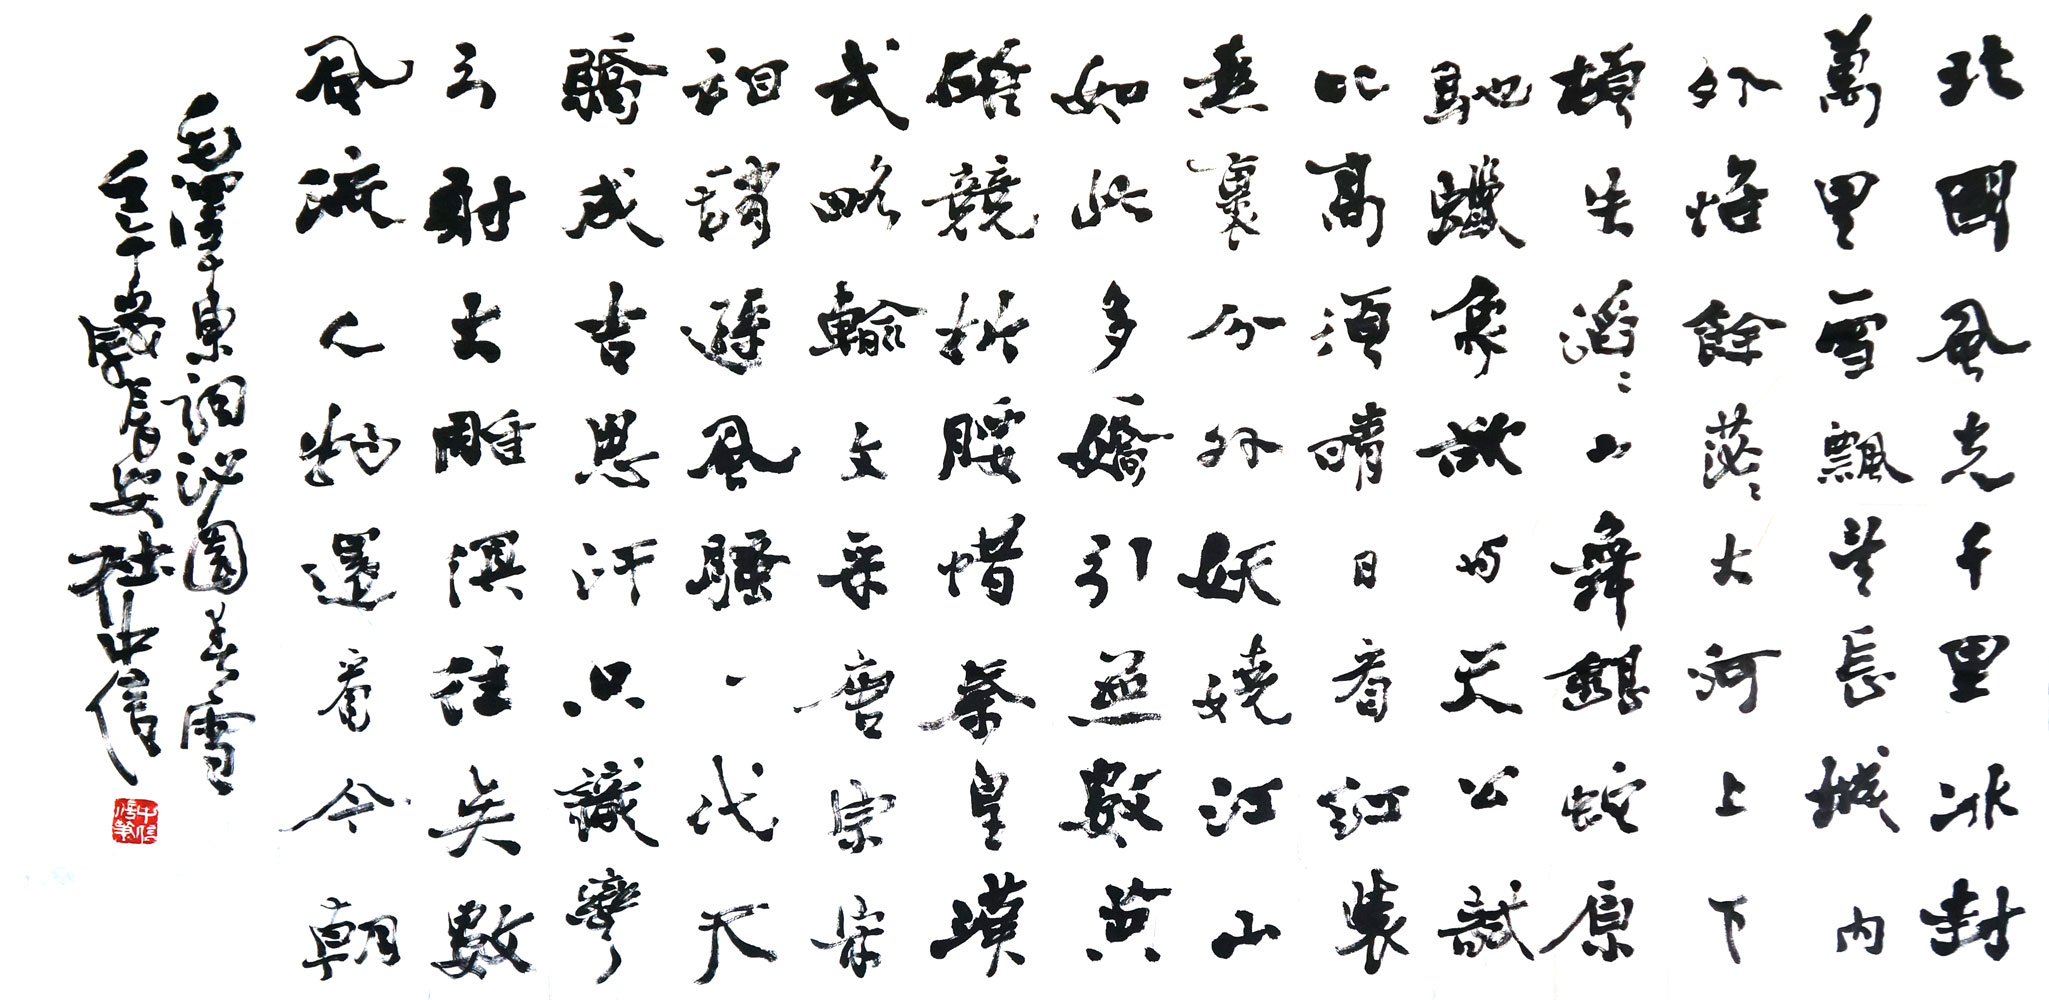 北國風光千里冰封
萬里雪飄望長城内
外惟餘莽〻大河上下
頓失滔〻山舞銀蛇原
馳蠟象欲与天公試
比高須晴日看紅裝
素裹分外妖嬈江山
如此多嬌引無數英
雄競折腰惜秦皇漢
武略輸文采唐宗宋
祖稍遜風騷一代天
驕成吉思汗只識彎
弓射大雕俱往矣數
風流人物還看今朝
毛澤東詞沁園春雪
壬午歲長安杜中信